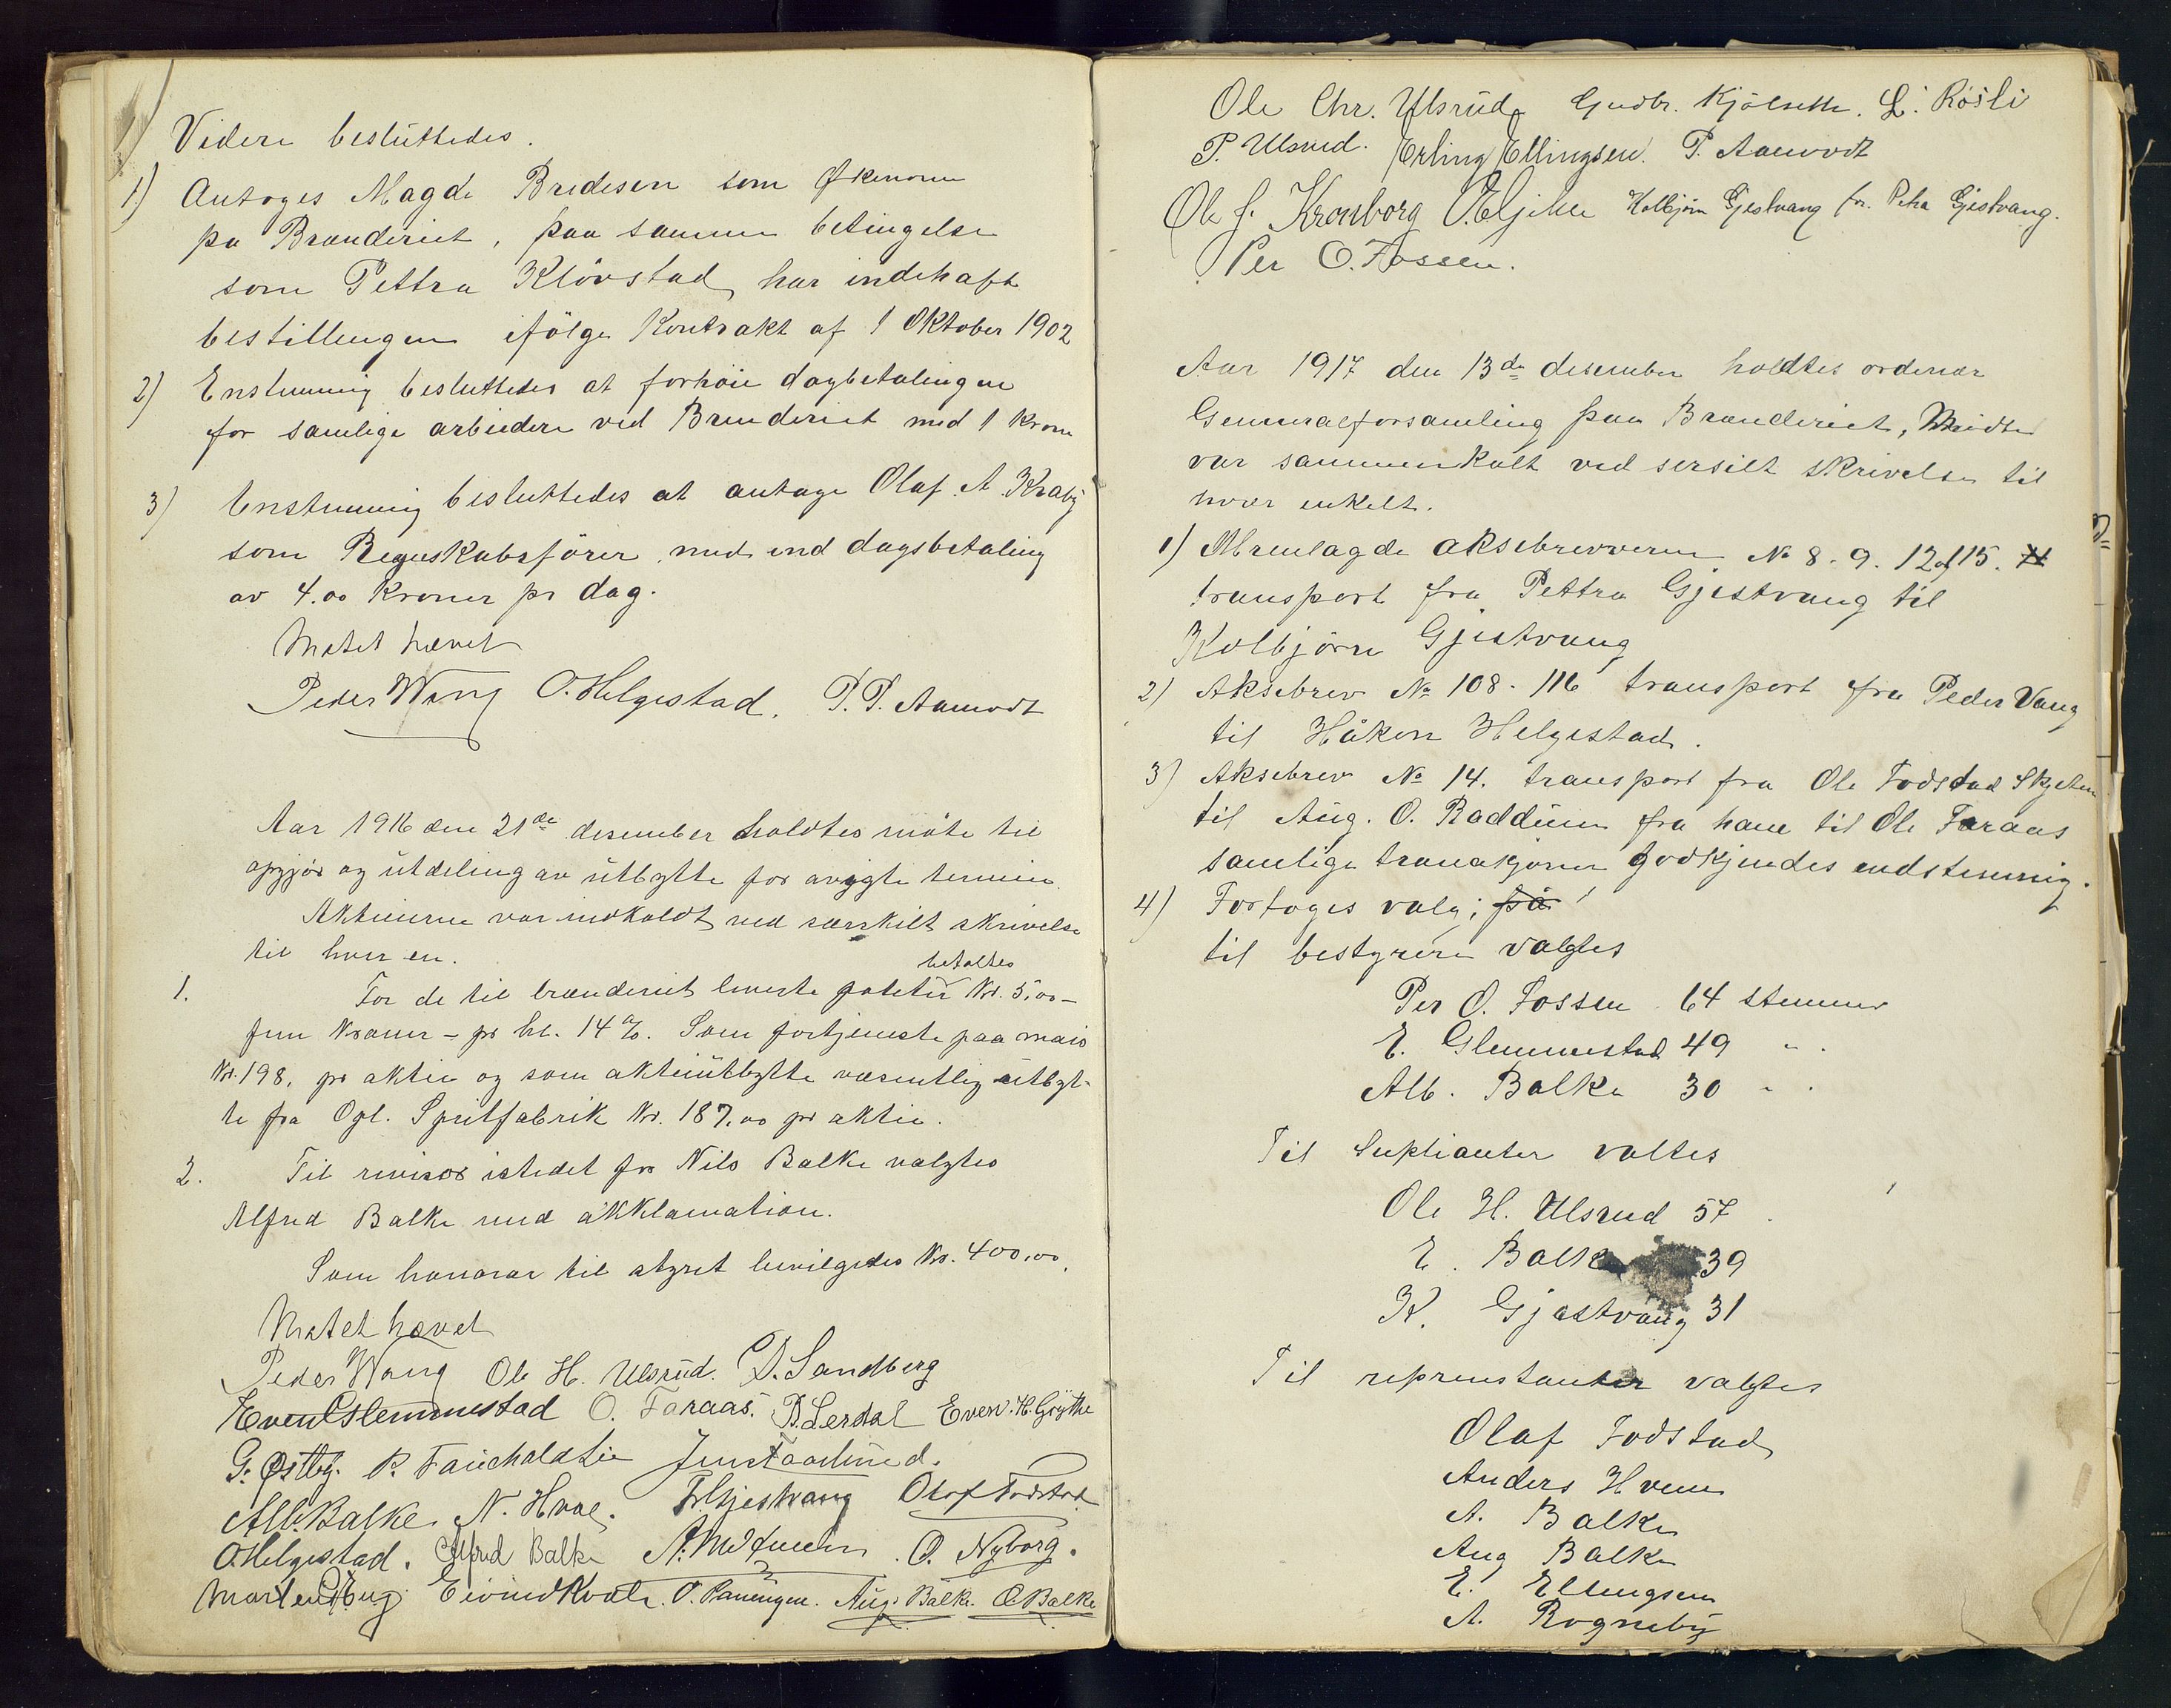 Videre besluttedes.
1) Antoges Magda Bredesen som Økonom
pa Brænderiet, paa samme betingelse
som Pettra Klövstad har indehaft
bestillingen ifölge Kontrakt af 1 Oktober 1902
2) Enstemmig besluttedes at forhöie dagbetalingen
for samlige arbeidere ved Brenderiet med 1 Krone
3) Enstemmig besluttedes at antage Olaf. A. Kraby
som Regnskabsförer med end dagsbetaling
av 4.00 Kroner pr dag.
Mötet hævet
Peder Wang O. Helgestad. P. P. Aamodt
Aar 1916 den 21de desember holdtes möte til
opgjör og utdeling av utbytte for avvigte termin.
Aktieierne var indkaldt ved særskilt skrivelse
til hver en.
betaltes
1. For de til brænderiet leverte poteter Kr. 5,00 –
fem Kroner – pr hl. 14 %. Som fortjeneste paa mais
Kr. 198, pr aktie og som aktieutbytte væsentlig utbyt-
te fra Opl. Spritfabrik Kr. 187,00 pr aktie.
2. Til revisor istedet for Nils Balke valgtes
Alfred Balke med akklamation.
Som honorar til styret bevilgedes Kr. 400,00.
Mötet hævet
Peder Wang Ole H. Ulsrud. D. Sandberg
Even Glemmestad O. Faraas. P. Lerdal Even. H. Gröthe
G. Østby. P. Fauchald Lie Jens Faarlund.
Alb. Balke. N. Hval. P. Gjestvang Olaf Fodstad
O. Helgestad. Alfred Balke O. Nyborg.
Marten Eivind Kvale. Aug. Balke. O. Balke
Ole Chr. Ulsrud Gudbr. Kjölseth. L. Rösli
P. Ulsrud. Erling Ellingsen. P. Aamodt
Ole J. Kronborg Kolbjörn Gjestvang for Petra Gjestvang.
Per O. Fossen.
Aar 1917 den 13de desember holdtes ordenær
Generalforsamling paa Brænderiet, Mödte
var sammenkalt ved sersilt skrivelse til
hver enkelt.
1) Fremlagde aksebrevverne No 8. 9. 12 og 15.
transport fra Pettra Gjestvang til
Kolbjörn Gjestvang
2) Aksebrev No 108 - 116 transport fra Peder Vang
til Håkon Helgestad.
3) Aksebrev No 14. transport fra Ole Fodstad Skjelen
til Aug. O. Raddum fra ham til Ole Faraas
samlige transakjoner godkjendes endstemmig.
4) Fortoges valg; på
til bestyrere valgtes
Per O. Fossen 64 stemmer
E. Glemmestad 49 " .
Alb. Balke 30 " .
Til Suplianter valtes
Ole H. Ulsrud 57 .
E. Balke 39
K. Gjestvang 31
Til representanter valgtes
Olaf Fodstad
Anders Hveem
A. Balke
Aug Balke
E. Ellingsen
A. Rogneby